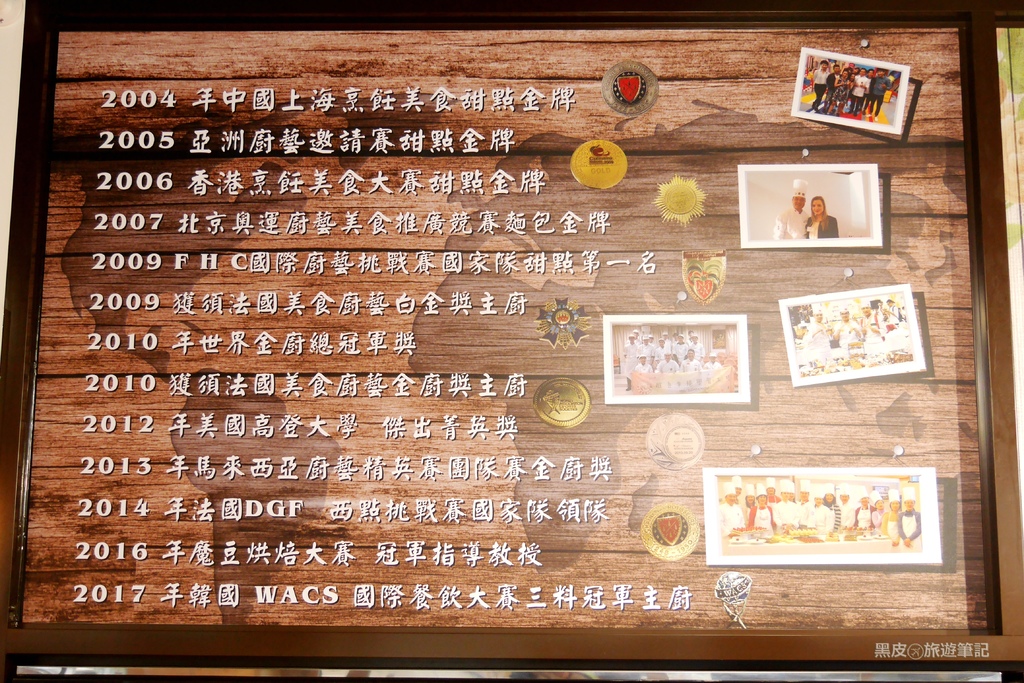 2004 年中國上海烹飪美食甜點金牌
2005 亞洲廚藝邀請賽甜點金牌
2006 香港烹飪美食大賽甜點金牌
2007 北京奧運廚藝美食推廣競賽麵包金牌
2009 F H C國際廚藝挑戰賽國家隊甜點第一名
2009 獲頒法國美食廚藝白金獎主廚
2010 年世界金廚總冠軍獎
2010 獲頒法國美食廚藝金廚獎主廚
2012 年美國高登大學 傑出菁英獎
2013 年馬來西亞廚藝精英賽團隊賽金廚獎
2014 年法國DGF 西點挑戰賽國家隊領隊
2016 年魔豆烘焙大賽 冠軍指導教授
2017 年韓國 WACS 國際餐飲大賽三料冠軍主廚
GOLD
WACS
黑皮旅遊筆記